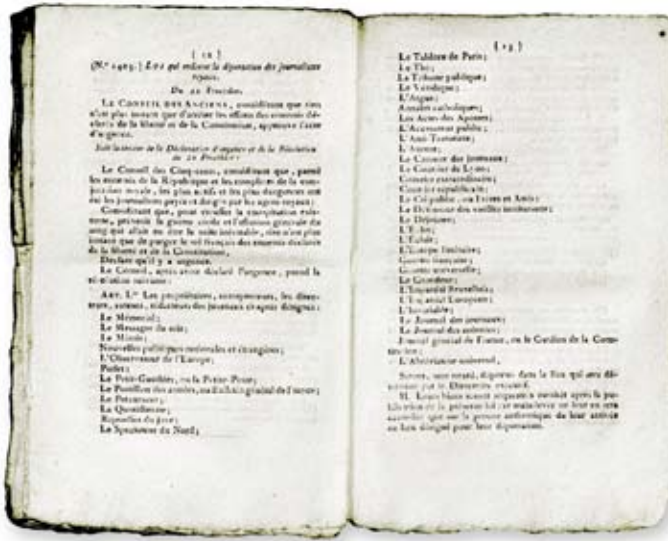 ( 12 )
(N.º 1405.) LOI qui ordonne la déportation des journalistes
royaux.
Du 22 Fructidor.
LE CONSEIL DES ANCIENS, considérant que rien
n'est plus instant que d'arrêter les efforts des ennemis dé-
clarés de la liberté et de la Constitution, approuve l'acte
d'urgence.
Suit la teneur de la Déclaration d'urgence et de la Résolution
du 22 Fructidor:
Le Conseil des Cinq-cents, considérant que, parmi
les ennemis de la République et les complices de la con-
juration royale, les plus actifs et les plus dangereux ont
été les journalistes payés et dirigés par les agens royaux;
Considérant que, pour étouffer la conspiration exis-
tante, prévenir la guerre civile et l'effusion générale du
sang qui allait en être la suite inévitable, rien n'est plus
instant que de purger le sol français des ennemis déclarés
de la liberté et de la Constitution,
Déclare qu'il y a urgence.
Le Conseil, après avoir déclaré l'urgence, prend la
résolution suivante:
ART. I.er Les propriétaires, entrepreneurs, les direc-
teurs, auteurs, rédacteurs des journaux ci-après désignés:
Le Mémorial;
Le Messager du soir;
Le Miroir;
Nouvelles politiques nationales et étrangères;
L'Observateur de l'Europe;
Perlet;
Le Petit-Gauthier, ou la Petite-Poste;
Le Postillon des armées, ou Bulletin général de France;
Le Précurseur;
La Quotidienne;
Rapsodies du jour;
Le Spectateur du Nord;
( 13 )
Le Tableau de Paris;
Le Thé;
La Tribune publique;
Le Véridique;
L'Argus;
Annales catholiques;
Les Actes des Apôtres;
L'Accusateur public;
L'Anti-Terroriste;
L'Aurore;
Le Censeur des journaux;
Le Courrier de Lyon;
Courrier extraordinaire;
Courrier républicain;
Le Cri public, ou Frères et Amis;
Le Défenseur des vieilles institutions;
Le Déjeuner;
L'Écho;
L'Éclair;
L'Europe littéraire;
Gazette française;
Gazette universelle;
Le Grondeur;
L'Impartial Bruxellois;
L'Impartial Européen;
L'Invariable;
Le Journal des journaux;
Le Journal des colonies;
Journal général de France, ou le Gardien de la Cons-
titution;
L'Abréviateur universel,
Seront, sans retard, déportés dans le lieu qui sera dé-
terminé par le Directoire exécutif.
II. Leurs biens seront séquestrés aussitôt après la pu-
blication de la présente loi; et mainlevée ne leur en sera
accordée que sur la preuve authentique de leur arrivée
au lieu désigné pour leur déportation.